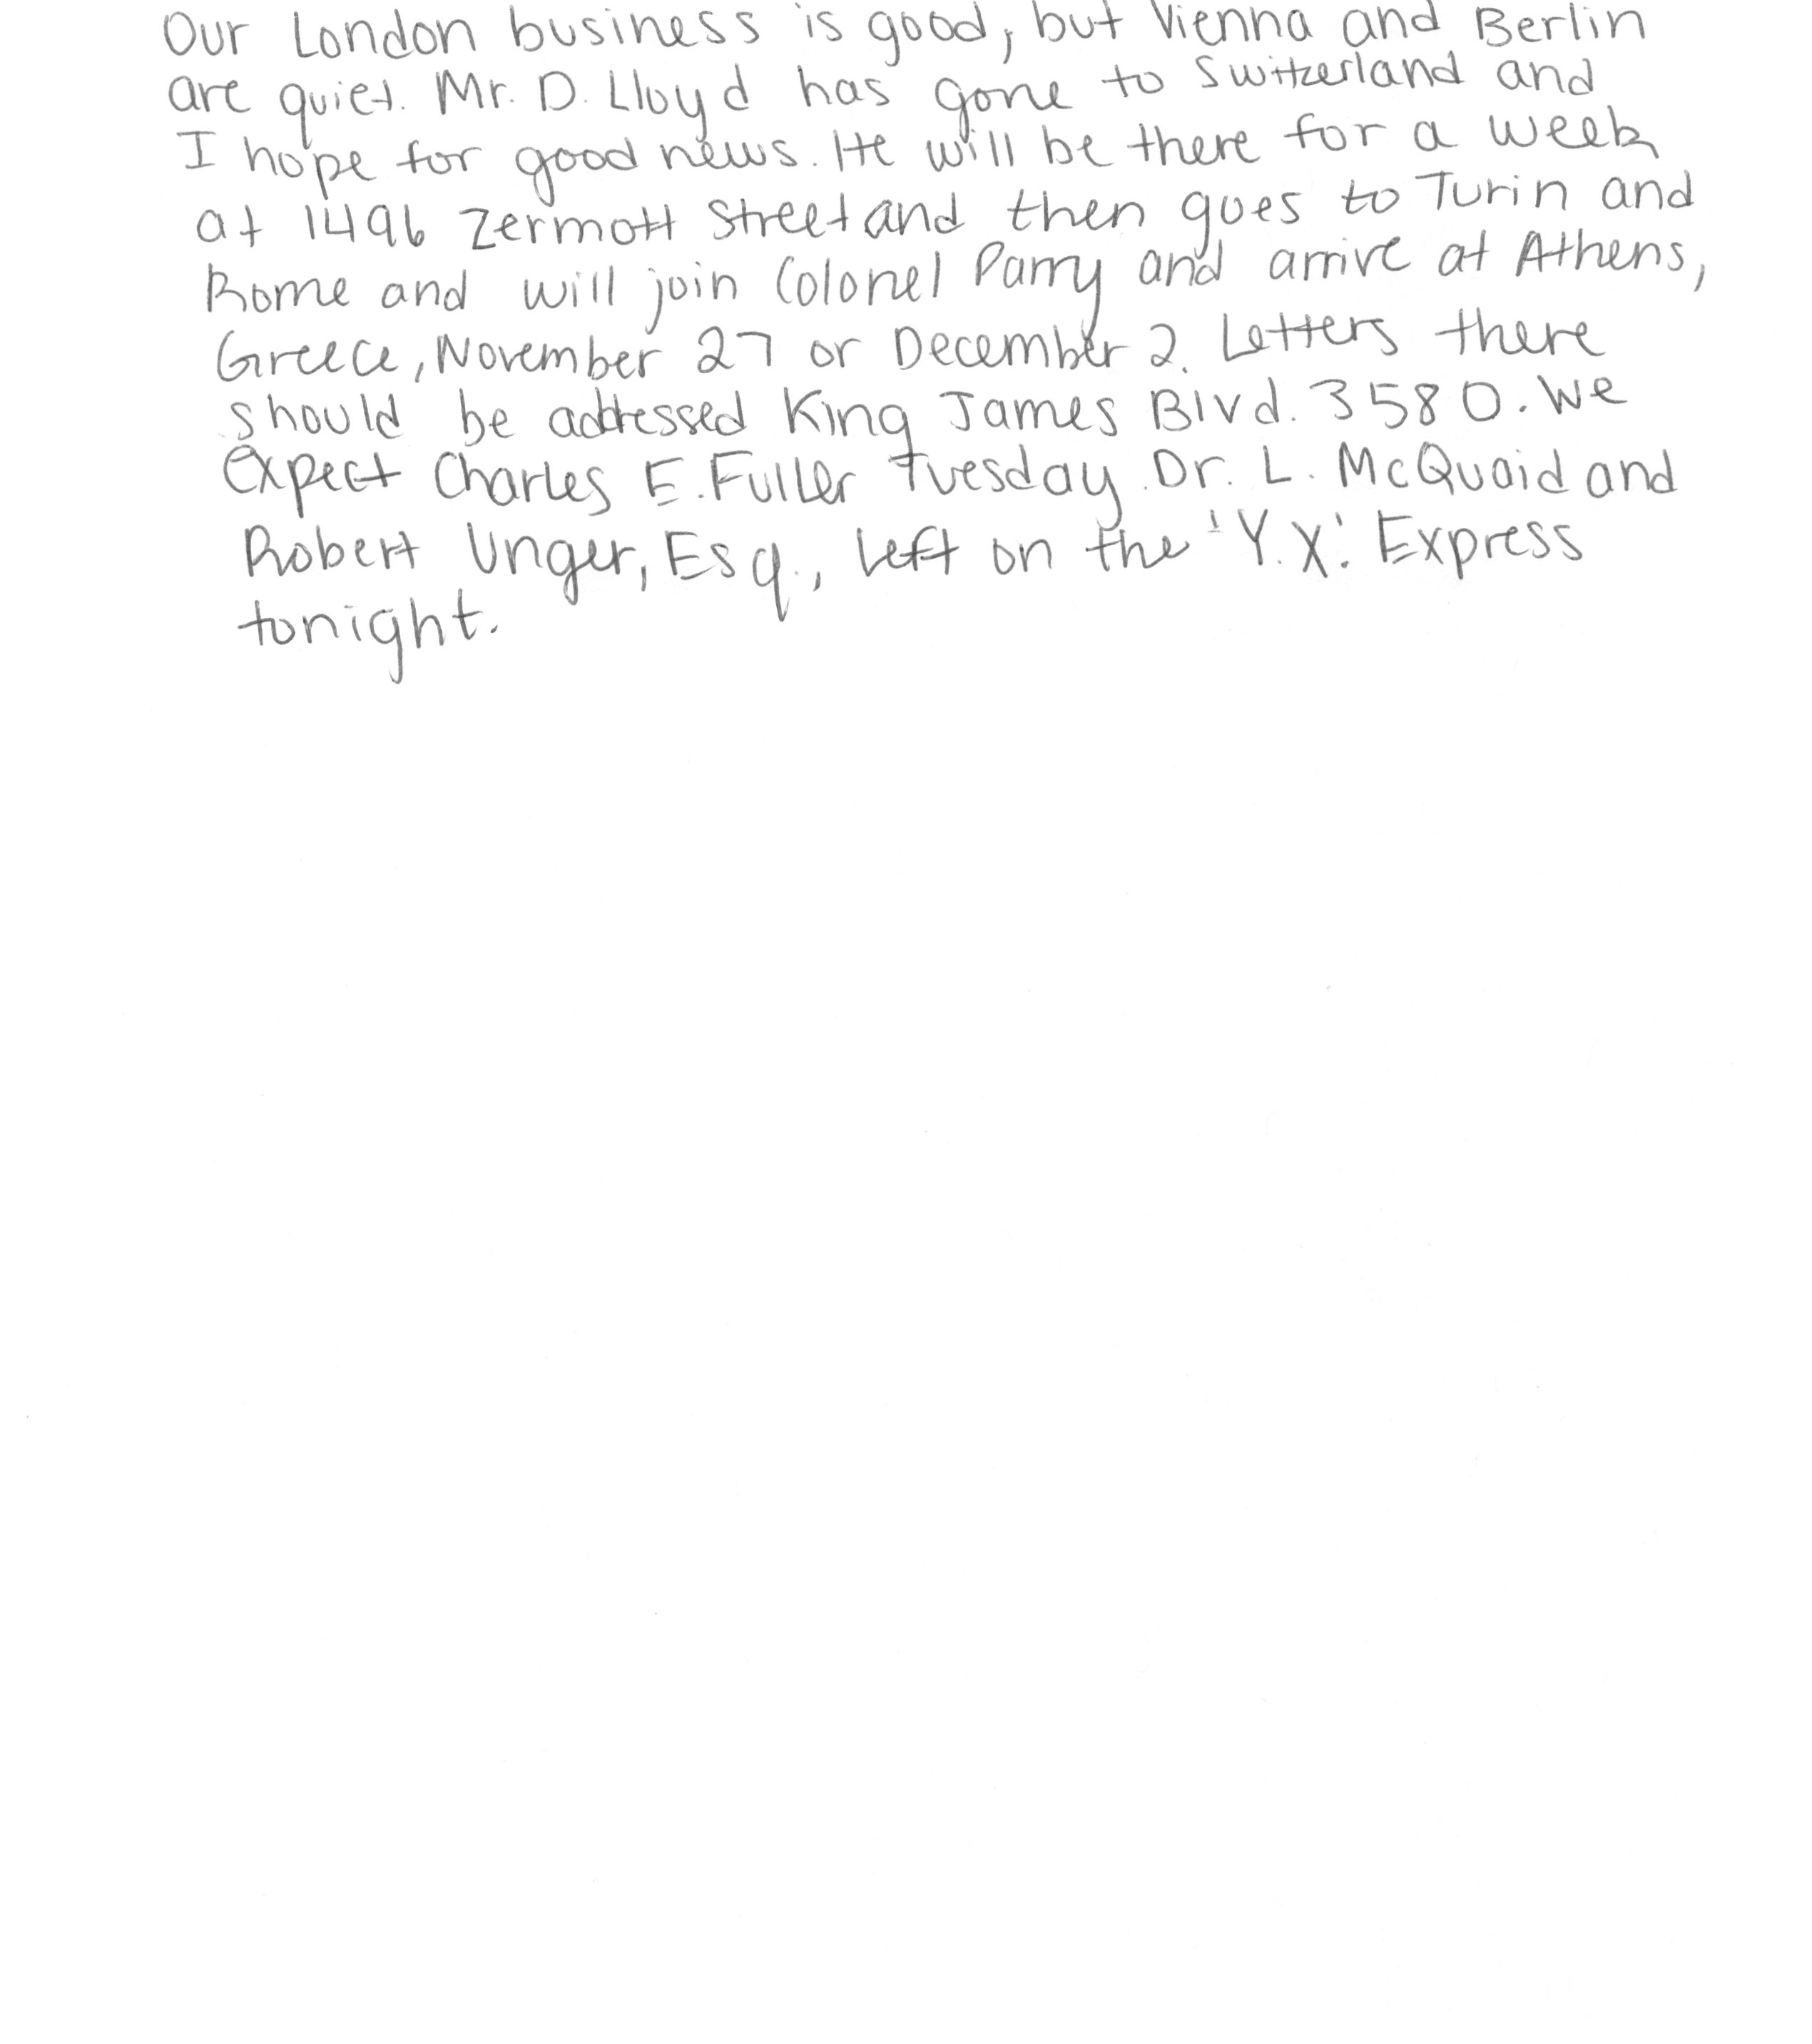 Our London business is good, but Vienna and Berlin
are quiet. Mr. D. Lloyd has gone to Switzerland and
I hope for good news. He will be there for a week
at 1496 Zermott Street and then goes to Turin and
Rome and will join Colonel Parry and arrive at Athens,
Greece, November 27 or December 2. Letters there
should be addressed King James Blvd. 3580. We
expect Charles E. Fuller Tuesday. Dr. L. McQuaid and
Robert Unger, Esq., left on the 'Y.X.' Express
tonight.